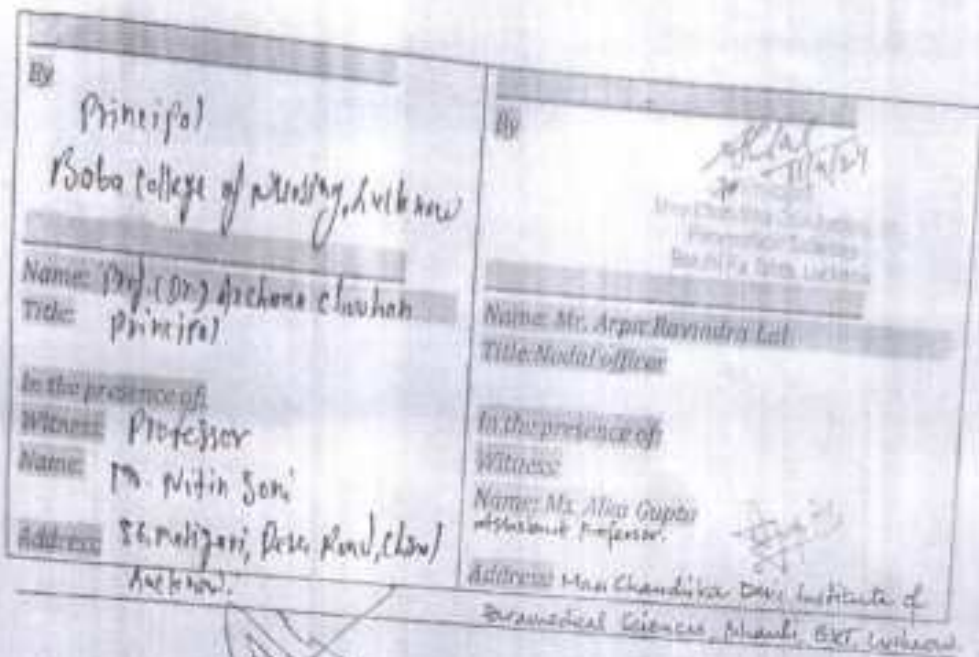 By
Principal
Baba College of Nursing, Lucknow
Name: Prof. (Dr.) Archana Chauhan
Title: Principal
In the presence of:
Witness: Professor
Name: Mr Nitin Soni
Address: Road,
Lucknow.
By
Name: Mr. Arpit Ravindra Lal
Title: Nodal officer
In the presence of:
Witness:
Name: Ms. Alka Gupta
Assistant Professor.
Address: Maa Chandrika Devi Institute of
Paramedical Sciences, BKT, Lucknow